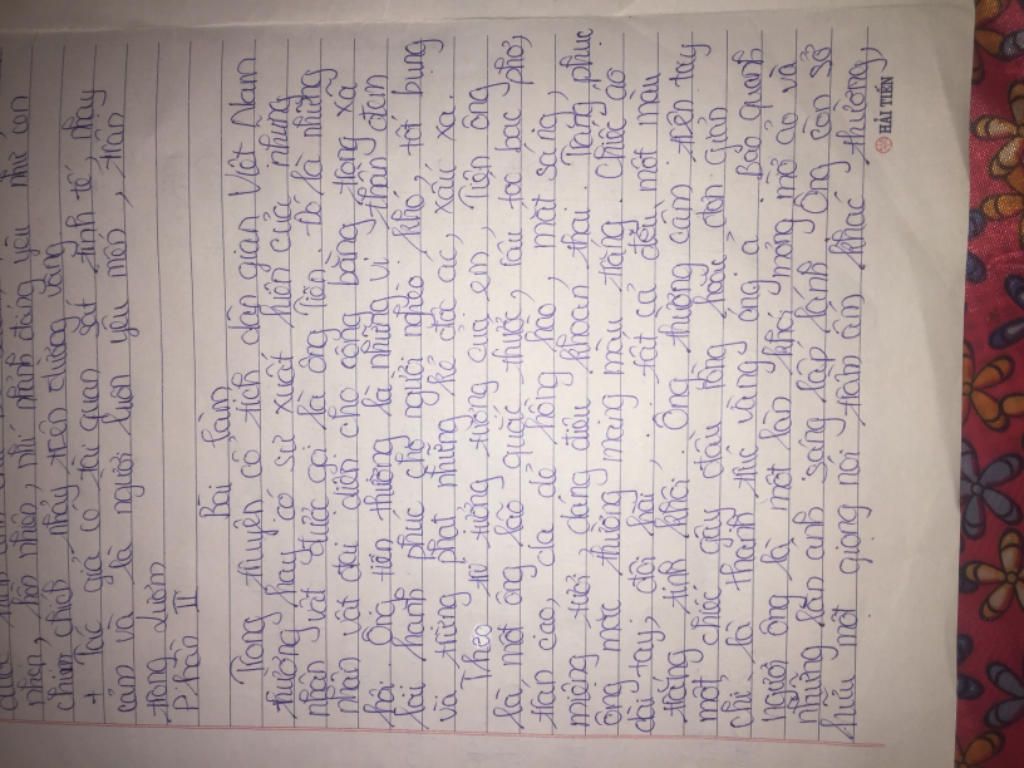 nhỏ, hồn nhiên, nhí nhảnh đáng yêu như con
chim chích nhảy trên đường vàng
+ Tác giả có tài quan sát tinh tế, nhạy
cảm và là người luôn yêu mến, trân
trọng Lượm
Phần II
Bài làm
Trong truyện cổ tích dân gian Việt Nam
thường hay có sự xuất hiện của những
nhân vật được gọi là ông Tiên. Đó là những
nhân vật đại diện cho công bằng trong xã
hội. Ông tiên thường là những vị thần đem
lại hạnh phúc cho người nghèo khó, tốt bụng
và trừng phạt những kẻ độc ác, xấu xa.
Theo trí tưởng tượng của em, Tiên ông
là một ông lão quắc thước, râu tóc bạc phơ,
trán cao, da dẻ hồng hào, mắt sáng,
miệng tươi, dáng điệu khoan thai. Trang phục
ông mặc thường mang màu trắng. Chiếc áo
dài tay, đôi hài, tất cả đều một màu
trắng tinh khôi. Ông thường cầm trên tay
một chiếc gậy đầu rồng hoặc đơn giản
chỉ là thanh trúc vàng óng ả. Bao quanh
người ông là một làn khói mỏng mờ ảo và
những làn anh sáng lấp lánh. Ông còn sở
hữu một giọng nói trầm ấm, khác thường,
HẢI TIẾN